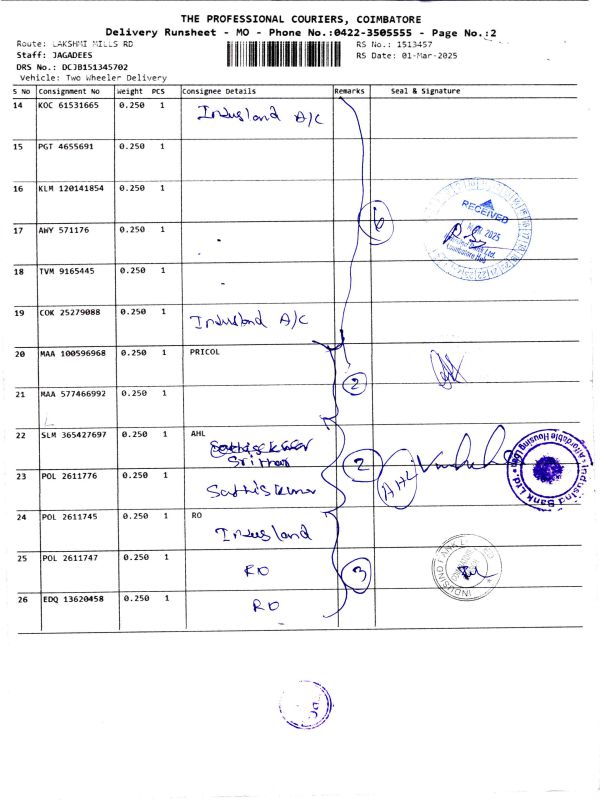 THE PROFESSIONAL COURIERS, COIMBATORE
Delivery Runsheet - MO - Phone No.:0422-3505555 - Page No.:2
Route: LAKSHMI MILLS RD
RS No.: 1513457
Staff: JAGADEES
RS Date: 01-Mar-2025
DRS No.: DCJB151345702
Vehicle: Two Wheeler Delivery
S No Consignment No Weight PCS Consignee Details Remarks Seal & Signature
14 KOC 61531665 0.250 1 Indusland A/C
15 PGT 4655691 0.250 1
16 KLM 120141854 0.250 1
6
RECEIVED
2025
Coimbatore Hub
17 AWY 571176 0.250 1 "
18 TVM 9165445 0.250 1
19 COK 25279088 0.250 1 Indusland A/C
20 MAA 100596968 0.250 1 PRICOL
2
21 MAA 577466992 0.250 1
22 SLM 365427697 0.250 1 AHL
2
AHL
IndusInd Bank Ltd.
Affordable Housing Loan
23 POL 2611776 0.250 1
Sathiskumar
24 POL 2611745 0.250 1 RO
Indusland
25 POL 2611747 0.250 1 RO
3
INDUSIND BANK
26 EDQ 13620458 0.250 1 RO